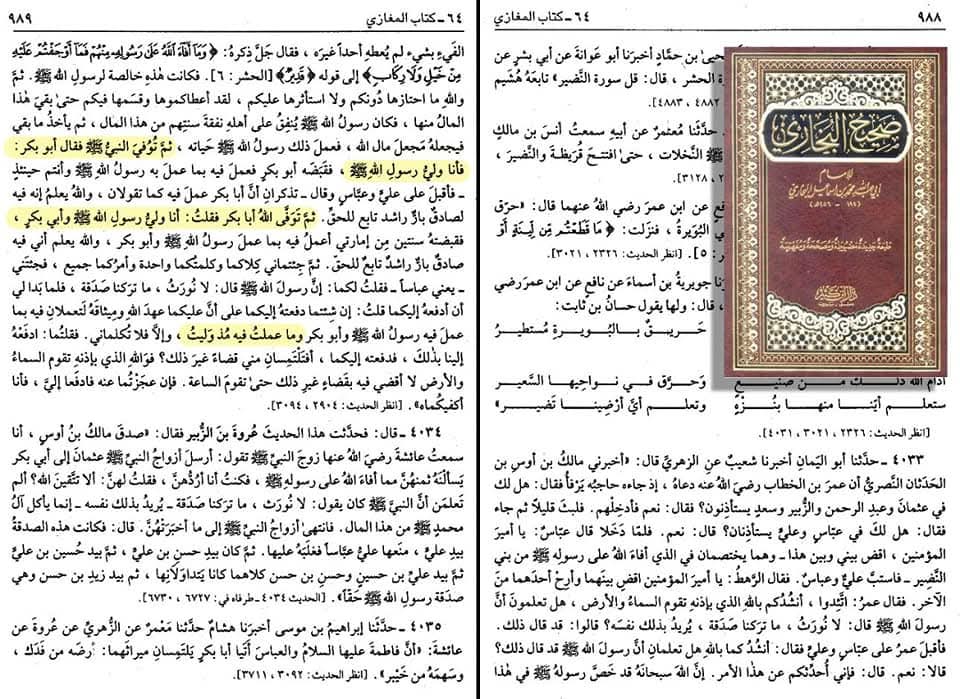 ٩٨٨
٦٤ - كتاب المغازي
يحيىٰ بن حمَّاد أخبرنا أبو عَوانة عن أبي بشرٍ عن
الحشر ، قال: قل سورة النَّضير» تابعَهُ هُشَيم
٤٨٨٢ ، ٤٨٨٣].
حدَّثنا مُعتمرٌ عن أبيه سمعتُ أنسَ بن مالكٍ
ﷺ النَّخلات ، حتىٰ افتتحَ قُرَيظةَ والنَّضير ،
٣١٢٨ ،
عن ابن عمرَ رضي اللهُ عنهما قال: «حرَّق
البُوَيرة ، فنزلت: ﴿ مَا قَطَعْتُم مِّن لِّينَةٍ أَوْ
: ٥]. [انظر الحديث: ٢٣٢٦ ، ٣٠٢١].
جويريةُ بن أسماءَ عن نافع عنِ ابن عمرَ رضي
، قال: ولها يقول حسانُ بن ثابت:
حَريقٌ بالبُويرة مُستَطيرُ
أدامَ اللهُ ذلكَ من صنيعٍ
وحَرَّق في نواحيها السَّعير
ستعلم أيُّنا منها بنُزْهٍ
وتعلم أيَّ أرْضِينا تَضير»
[انظر الحديث: ٢٣٢٦ ، ٣٠٢١ ، ٤٠٣١].
٤٠٣٣ ـ حدَّثنا أبو اليَمان أخبرنا شعيبٌ عنِ الزهريِّ قال: «أخبرني مالكُ بن أوس بن
الحَدَثان النَّصْريُّ أن عمرَ بن الخطاب رضيَ اللهُ عنه دعاهُ ، إذ جاءه حاجبُه يَرْفأ فقال: هل لك
في عثمانَ وعبدِ الرحمن والزُّبير وسعدٍ يستأذنون؟ فقال: نعم فأدخِلْهم. فلبثَ قليلاً ثم جاء
فقال: هل لكَ في عبَّاسٍ وعليٍّ يستأذنان؟ قال: نعم. فلمَّا دَخَلا قال عبَّاسٌ: يا أميرَ
المؤمنين ، اقضِ بيني وبين هذا ـ وهما يختصمان في الذي أفاءَ اللهُ على رسولِه ﷺ من بني
النَّضير ـ فاستبَّ عليٌّ وعباسٌ. فقال الرَّهطُ: يا أميرَ المؤمنين اقضِ بينَهما وأرِحْ أحدَهما منَ
الآخر. فقال عمرُ: اتَّئِدوا ، أنشُدُكم باللهِ الذي بإذنهِ تقوم السماءُ والأرض ، هل تعلمونَ أنَّ
رسولَ اللهِ ﷺ قال: لا نُورَثُ ، ما ترَكنا صَدَقة ، يُريدُ بذلك نفسَه؟ قالوا: قد قال ذلك.
فأقبلَ عمرُ على عباسٍ وعليٍّ فقال: أنشُدُ كما بالله هل تعلمان أنَّ رسولَ اللهِ ﷺ قد قال ذلك؟
قالا: نعم. قال: فإني أُحدِّثكم عن هذا الأمر. إنَّ اللهَ سبحانَهُ قد خَصَّ رسولَهُ ﷺ في هٰذا
صحيح البخاري
للإمام
أبي عبد الله محمد بن إسماعيل البخاري
(١٩٤ - ٢٥٦هـ)
دار ابن كثير
٦٤ - كتاب المغازي
٩٨٩
الفَيءِ بشيء لم يُعطِهِ أحداً غيرَه ، فقال جَلَّ ذِكرهُ: ﴿ وَمَآ أَفَآءَ ٱللَّهُ عَلَىٰ رَسُولِهِۦ مِنْهُمْ فَمَآ أَوْجَفْتُمْ عَلَيْهِ
مِنْ خَيْلٍ وَلَا رِكَابٍ﴾ إلى قوله ﴿ قَدِيرٌ﴾ [الحشر: ٦]. فكانت هٰذهِ خالصة لرسولِ الله ﷺ. ثمَّ
واللهِ ما احتازها دُونكم ولا استأثرها عليكم ، لقد أعطاكموها وقسَمَها فيكم حتىٰ بقيَ هٰذا
المالُ منها ، فكان رسولُ اللهِ ﷺ يُنفِقُ على أهلهِ نفقةَ سنتِهم من هذا المال ، ثم يأخذُ ما بقي
فيجعلُهُ مَجعلَ مالِ الله ، فعملَ ذلك رسولُ اللهِ ﷺ حياتَه ، ثمَّ تُوُفِّيَ النبيُّ ﷺ فقال أبو بكر:
فأنا وليُّ رسولِ اللهِ ﷺ ، فقبَضَه أبو بكرٍ فعملَ فيه بما عمل به رسولُ اللهِ ﷺ وأنتم حينئذٍ
ـ فأقبلَ على عليٍّ وعبَّاسٍ وقال ـ تذكرانِ أنَّ أبا بكر عملَ فيه كما تقولان ، واللهُ يعلمُ إنه فيه
لصادقٌ بارٌّ راشد تابع للحقِّ. ثمَّ تَوفَّى اللهُ أبا بكر فقلتُ: أنا وليُّ رسولِ اللهِ ﷺ وأبي بكرٍ ،
فقبضتهُ سنتَينِ مِن إمارتي أعملُ فيه بما عملَ رسولُ اللهِ ﷺ وأبو بكر ، والله يعلم أني فيه
صادقٌ بارٌّ راشدٌ تابعٌ للحقِّ. ثمَّ جئتماني كِلاكما وكلمتُكما واحدة وأمرُكما جميع ، فجئتَني
ـ يعني عباساً ـ فقلتُ لكما: إنَّ رسولَ اللهِ ﷺ قال: لا نُورَثُ ، ما ترَكنا صَدَقة ، فلما بَدا لي
أن أدفعهُ إليكما قلتُ: إن شِئتما دفعتهُ إليكما على أنَّ عليكما عهدَ اللهِ ومِيثاقَهُ لَتَعملانِ فيه بما
عملَ فيه رسولُ الله ﷺ وأبو بكر وما عملتُ فيه مُذ وَليتُ ، وإلاّ فلا تُكلماني. فقلتما: ادفَعْهُ
إلينا بذٰلك ، فدفعته إليكما ، أفتَلتَمِسانِ مني قضاءً غيرَ ذلك؟ فوَاللهِ الذي بإذنهِ تقومُ السماءُ
والأرض لا أقضي فيه بقضاءٍ غيرِ ذلك حتىٰ تقومَ الساعة. فإن عجزْتُما عنه فادفعا إليَّ ، فأنا
أكفيكُماه» . [انظر الحديث: ٢٩٠٤ ، ٣٠٩٤].
٤٠٣٤ ـ قال: فحدَّثت هذا الحديثَ عُروةَ بن الزُّبير فقال: «صدق مالكُ بنُ أوس ، أنا
سمعتُ عائشةَ رضيَ اللهُ عنها زوجَ النبيِّ ﷺ تقول: أرسلَ أزواجُ النبيِّ ﷺ عثمانَ إلى أبي بكر
يَسألنَهُ ثمنَهنَّ مما أفاءَ اللهُ على رسولهِ ﷺ ، فكنتُ أنا أرُدُّهنَّ ، فقلتُ لهنَّ: ألا تتَّقينَ اللهَ؟ ألم
تَعلمْنَ أنَّ النبيَّ ﷺ كان يقول: لا نُورَث ، ما تركنا صَدَقة ـ يُريدُ بذلك نفسه ـ إنما يأكل آلُ
محمدٍ ﷺ من هذا المال. فانتهىٰ أزواجُ النبيِّ ﷺ إلى ما أخبَرَتهُنَّ. قال: فكانت هذهِ الصدقةُ
بيدِ عليٍّ ، منَعها عليٌّ عبَّاساً فغلبَهُ عليها. ثم كان بيدِ حسنِ بن عليٍّ ، ثم بيدِ حُسينِ بن عليٍّ
ثمَّ بيدِ عليِّ بن حسينٍ وحسنِ بن حسن كلاهما كانا يَتداوَلانِها ، ثم بيدِ زيدِ بن حسن وهي
صدَقة رسولِ اللهِ ﷺ حقّاً» . [الحديث ٤٠٣٤ ـ طرفاه في: ٦٧٢٧ ، ٦٧٣٠].
٤٠٣٥ ـ حدَّثنا إبراهيمُ بن موسى أخبرَنا هشامٌ حدَّثنا مَعْمَرٌ عنِ الزُّهريِّ عن عُروةَ عن
عائشةَ: «أنَّ فاطمةَ عليها السلامُ والعباسَ أتَيا أبا بكرٍ يَلتمِسانِ ميراثَهما: أرضَه من فَدَك ،
وسَهمَهُ من خَيْبر» . [انظر الحديث: ٣٠٩٢ ، ٣٧١١].